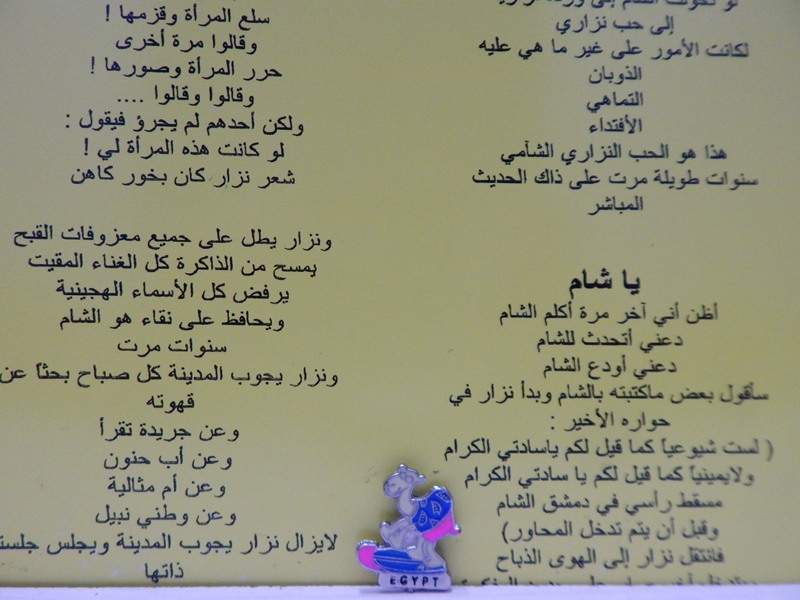 إلى حب نزاري
لكانت الأمور على غير ما هي عليه
الذوبان
التماهي
الأفتداء
هذا هو الحب النزاري الشآمي
سنوات طويلة مرت على ذاك الحديث
المباشر
يا شام
أظن أني آخر مرة أكلم الشام
دعني أتحدث للشام
دعني أودع الشام
سأقول بعض ماكتبته بالشام وبدأ نزار في
حواره الأخير :
( لست شيوعياً كما قيل لكم ياسادتي الكرام
ولايمينياً كما قيل لكم يا سادتي الكرام
مسقط رأسي في دمشق الشام
وقبل أن يتم تدخل المحاور)
فانتقل نزار إلى الهوى الذباح
سلع المرأة وقزمها !
وقالوا مرة أخرى
حرر المرأة وصورها !
وقالوا وقالوا ....
ولكن أحدهم لم يجرؤ فيقول :
لو كانت هذه المرأة لي !
شعر نزار كان بخور كاهن
ونزار يطل على جميع معزوفات القبح
يمسح من الذاكرة كل الغناء المقيت
يرفض كل الأسماء الهجينية
ويحافظ على نقاء هو الشام
سنوات مرت
ونزار يجوب المدينة كل صباح بحثاً عن
قهوته
وعن جريدة تقرأ
وعن أب حنون
وعن أم مثالية
وعن وطني نبيل
لايزال نزار يجوب المدينة ويجلس جلسته
ذاتها
EGYPT